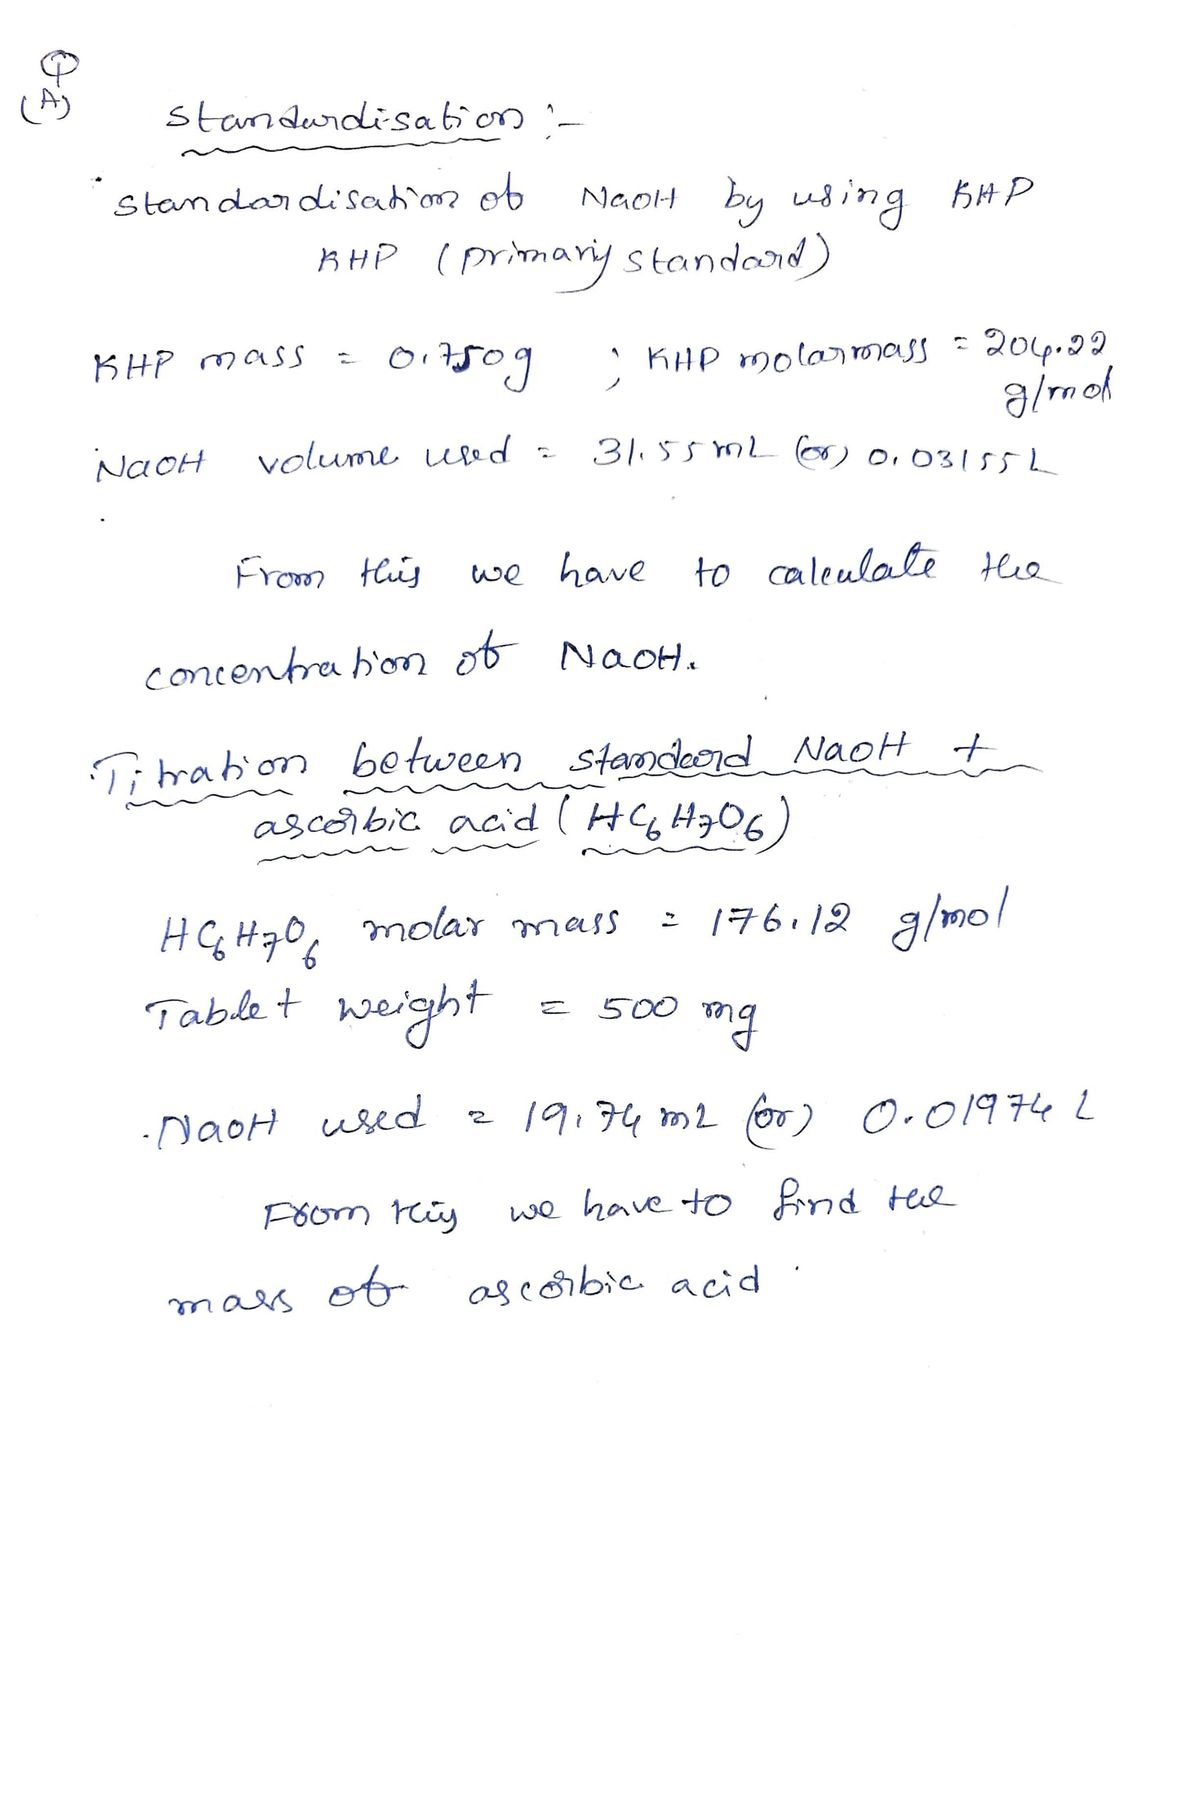 (A)
Standardisation :-
Standardisation of NaOH by using KHP
KHP (primary standard)
KHP mass = 0.750g ; KHP molarmass = 204.22
g/mol
NaOH volume used = 31.55 mL (or) 0.03155 L
From this we have to calculate the
concentration of NaOH.
Titration between standard NaOH +
ascorbic acid (HC6H7O6)
HC6H7O6 molar mass = 176.12 g/mol
Tablet weight = 500 mg
NaOH used = 19.74 mL (or) 0.01974 L
From this we have to find the
mass of ascorbic acid